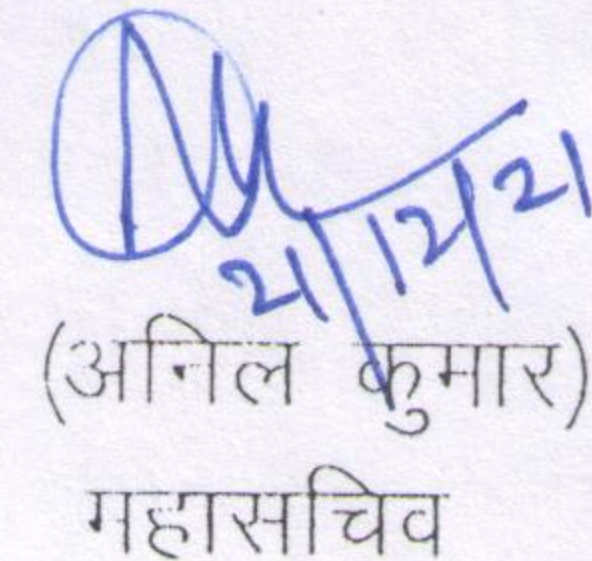 21/12/21
(अनिल कुमार)
महासचिव